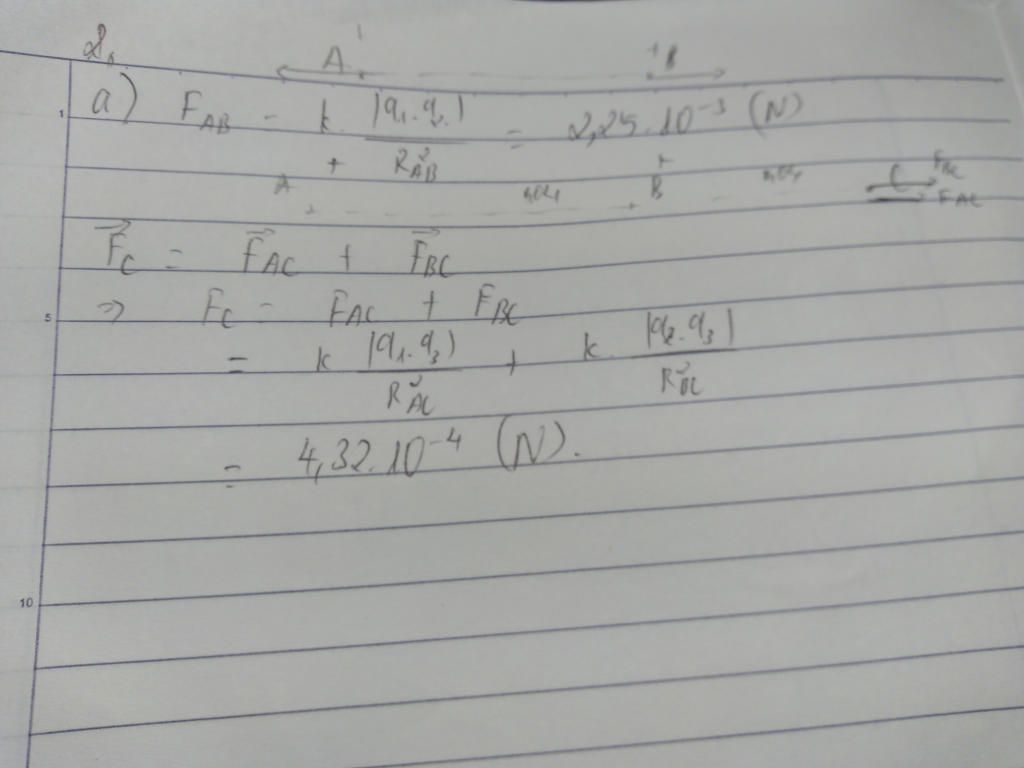 2.
A B
a) F_AB = k. |q₁.q₂.| / R²_AB = 2,25.10⁻³ (N)
+ +
A B C F_BC
F_AC
F⃗_C = F⃗_AC + F⃗_BC
=> F_C = F_AC + F_BC
= k |q₁.q₃| / R²_AC + k. |q₂.q₃| / R²_BC
= 4,32.10⁻⁴ (N).
1
5
10